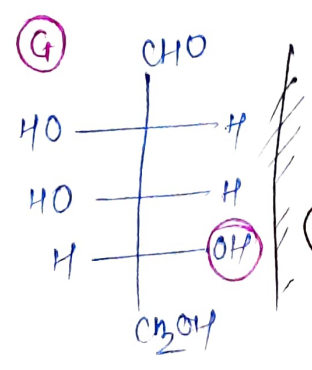 G
CHO
HO H
HO H
H OH
CH2OH